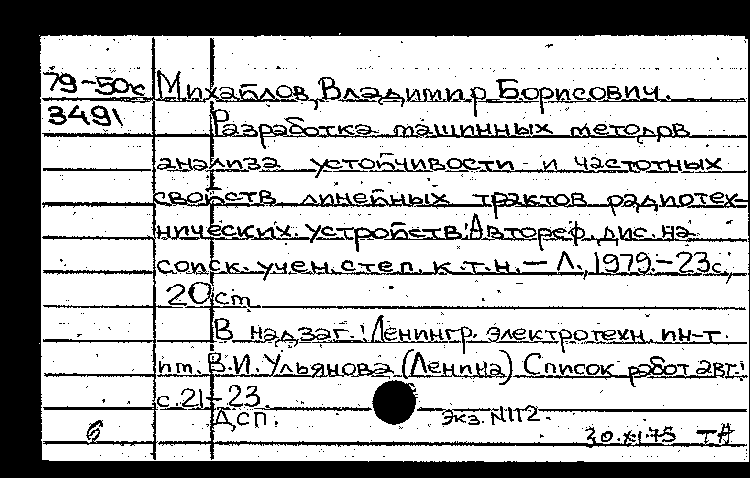 79-50с Михайлов, Владимир Борисович.
3491 Разработка машинных методов
анализа устойчивости и частотных
свойств линейных трактов радиотех-
нических устройств: Автореф. дис. на
соиск. учен. степ. к.т.н. — Л., 1979.-23с;
20 cm
В надзаг.: Ленингр. электротехн. ин-т.
им. В.И. Ульянова (Ленина) Список работ авт.:
с. 21-23.
ДСП. экз. N112.
6 30.XI.75 ТА